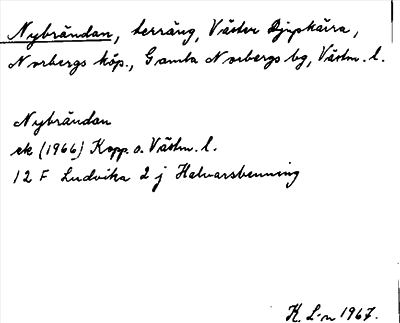 Nybrändan, terräng, Väster Djupkärra,
Norbergs köp., Gamla Norbergs bg, Västm. l.
Nybrändan
ek (1966) Kopp. o. Västm. l.
12 F Ludvika 2 j Halvarsbenning
K. L-n 1967.